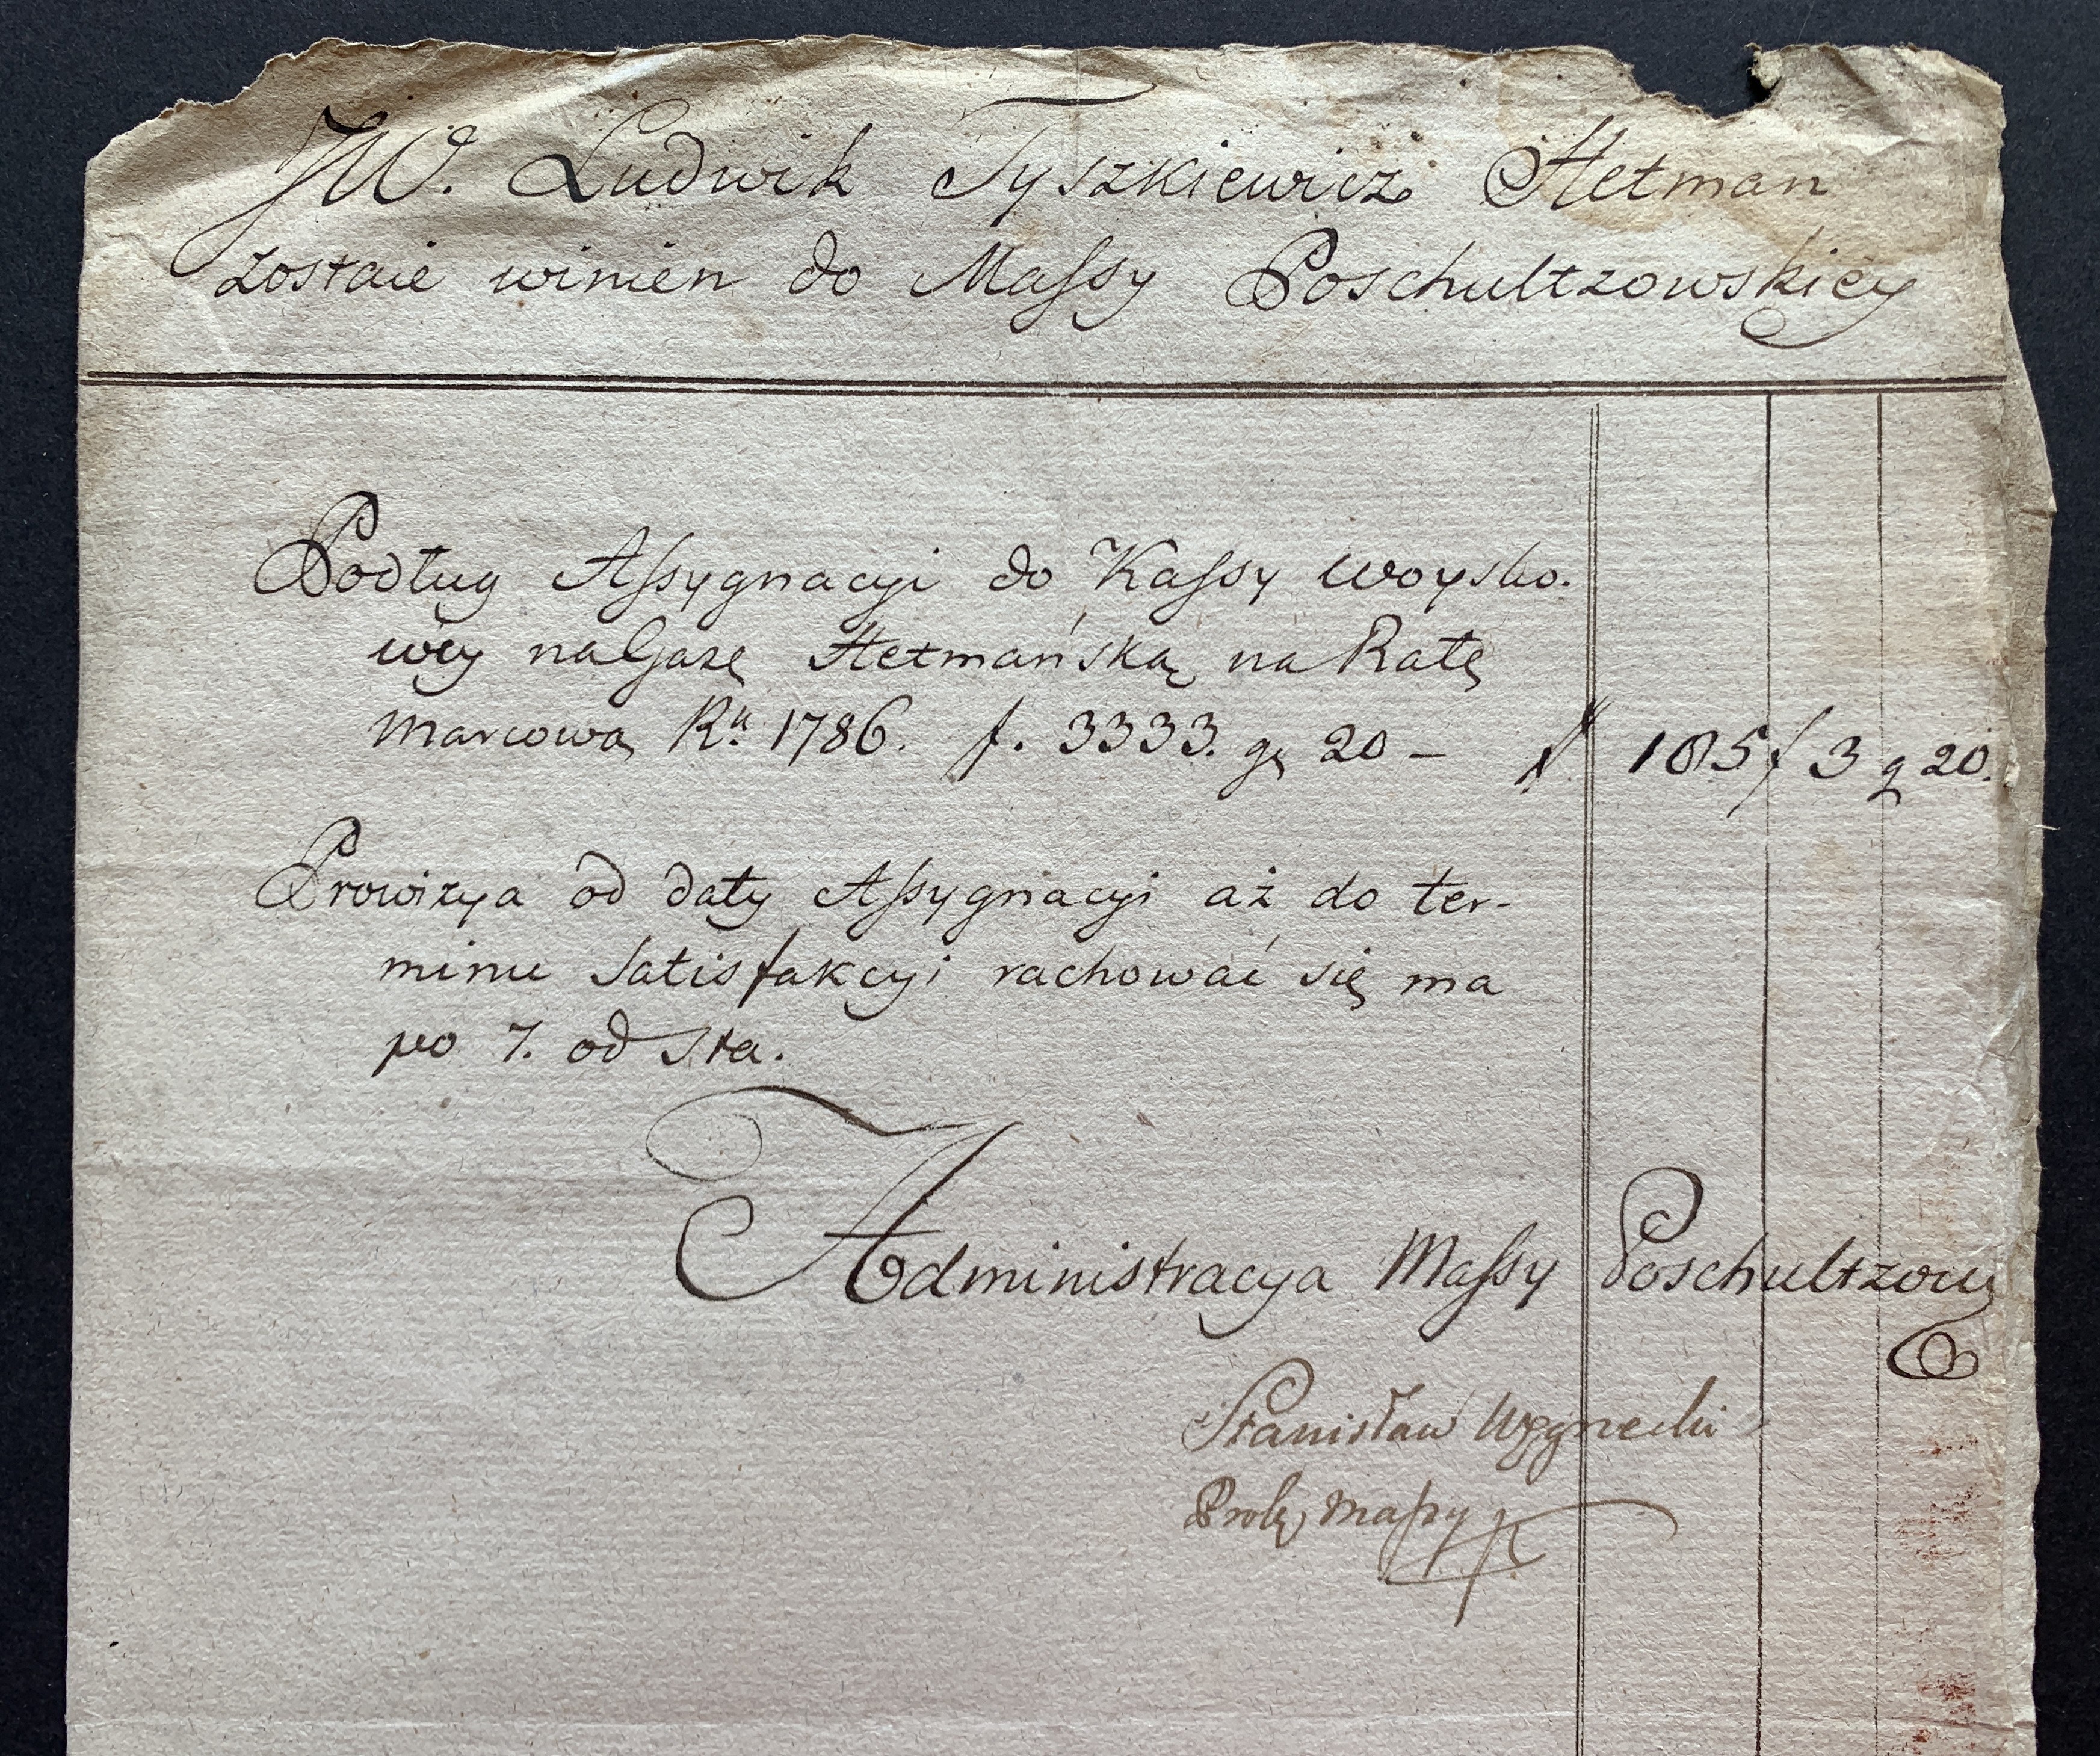 JW. Ludwik Tyszkiewicz Hetman
zostaie winien do Maſsy Poschultzowskiey
Podług Aſsygnacyi do Kaſsy Woysko.
wey na Gażę Hetmańską na Ratę
Marcową Ru. 1786. f. 3333. gr 20 – # 185 f 3 g 20.
Prowizya od daty Aſsygnacyi aż do ter-
minu Satisfakcyi rachować się ma
po 7. od Sta.
Administracya Maſsy Poschultzow
Stanisław
Maſsy